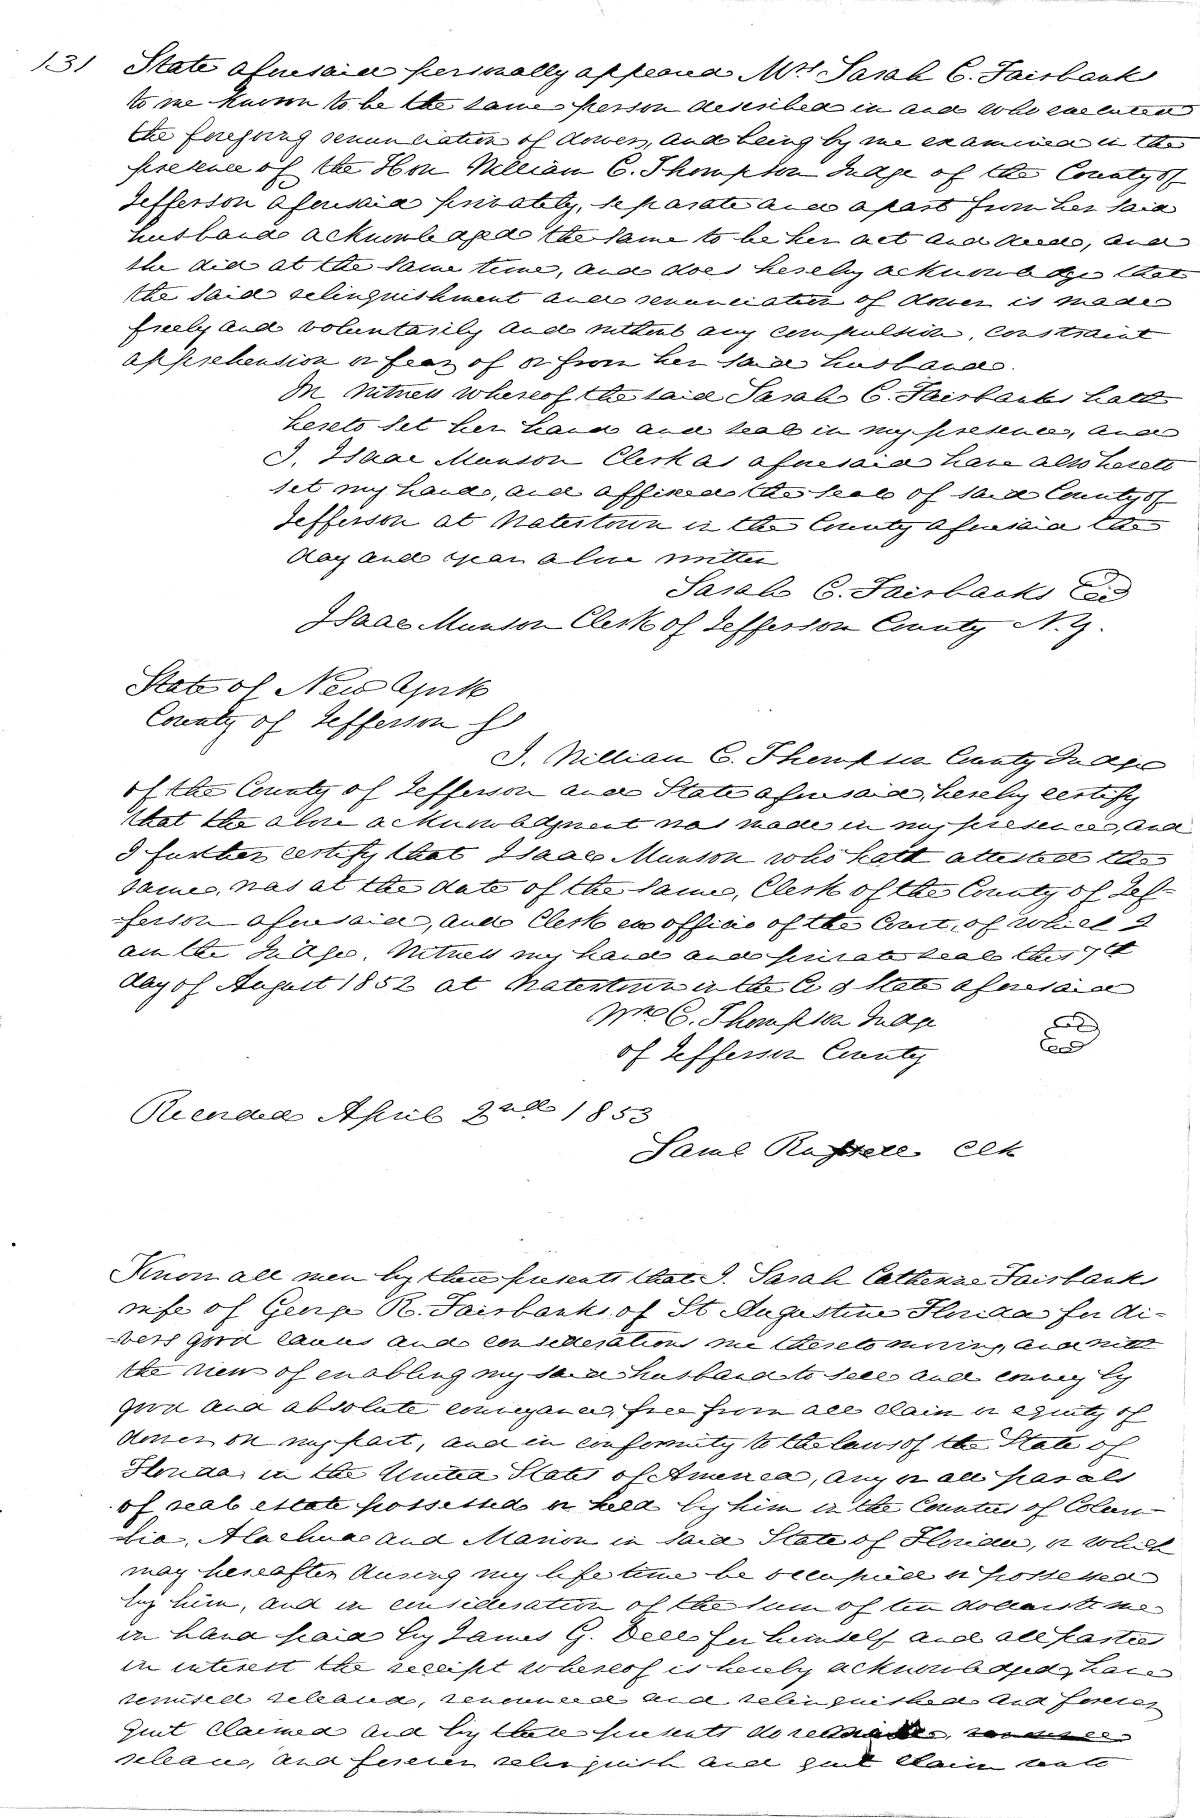 131 State aforesaid personally appeared Mrs Sarah C. Fairbanks
to me known to be the same person described in and who executed
the foregoing renunciation of dower, and being by me examined in the
presence of the Hon William C. Thompson Judge of the County of
Jefferson aforesaid privately, separate and apart from her said
husband acknowledged the same to be her act and deed, and
she did at the same time, and does hereby acknowledge that
the said relinquishment and renunciation of dower is made
freely and voluntarily and without any compulsion, constraint
apprehension or fear of or from her said husband.
In Witness whereof the said Sarah C. Fairbanks hath
hereto set her hand and seal in my presence, and
I, Isaac Munson Clerk as aforesaid have also hereto
set my hand, and affixed the seal of said County of
Jefferson at Watertown in the County aforesaid the
day and year above written
Sarah C. Fairbanks
Isaac Munson Clerk of Jefferson County N.Y.
State of New York
County of Jefferson SS
I, William C. Thompson County Judge
of the County of Jefferson and State aforesaid, hereby certify
that the above acknowledgment was made in my presence, and
I further certify that Isaac Munson who hath attested the
same, was at the date of the same, Clerk of the County of Jef-
-ferson aforesaid, and Clerk ex officio of the Court, of which I
am the Judge. Witness my hand and private seal this 7th
day of August 1852 at Watertown in the Co & State aforesaid
Wm C. Thompson Judge
of Jefferson County
Recorded April 2nd 1853
Saml Russell Clk
Know all men by these presents that I, Sarah Catherine Fairbanks
wife of George R. Fairbanks of St Augustine Florida for di-
-vers good causes and considerations me thereto moving, and with
the view of enabling my said husband to sell and convey by
good and absolute conveyance, free from all claim or equity of
dower on my part, and in conformity to the laws of the State of
Florida, in the United States of America, any or all parcels
of real estate possessed or held by him in the Counties of Colum-
-bia, Alachua and Marion in said State of Florida, or which
may hereafter during my life time be occupied or possessed
by him, and in consideration of the sum of ten dollars to me
in hand paid by James G. Dell for himself and all parties
in interest the receipt whereof is hereby acknowledged, have
remised released, renounced and relinquished and forever
quit claimed and by these presents do
release, and forever relinquish and quit claim unto